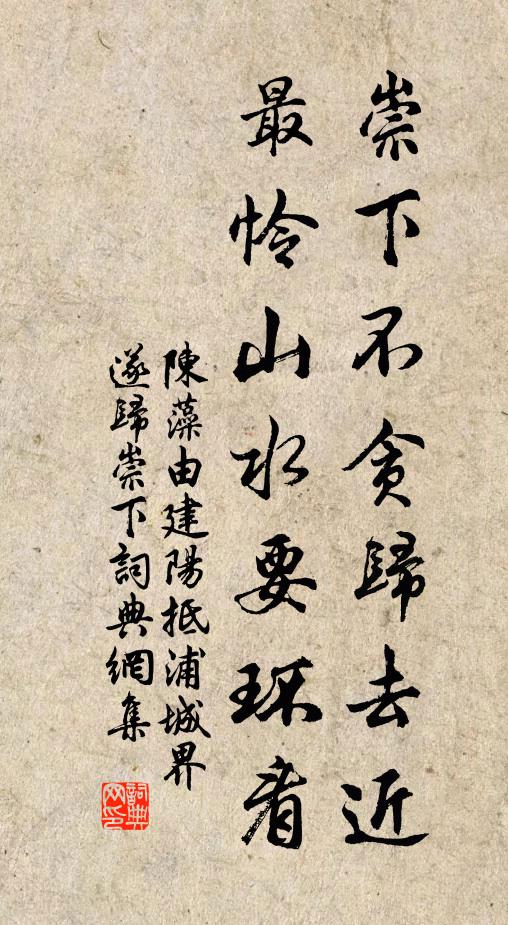 崇下不貪歸去近
最怜山水要环看
陳藻由建陽抵浦城界
遂歸崇下詞典網集
詞典
网印